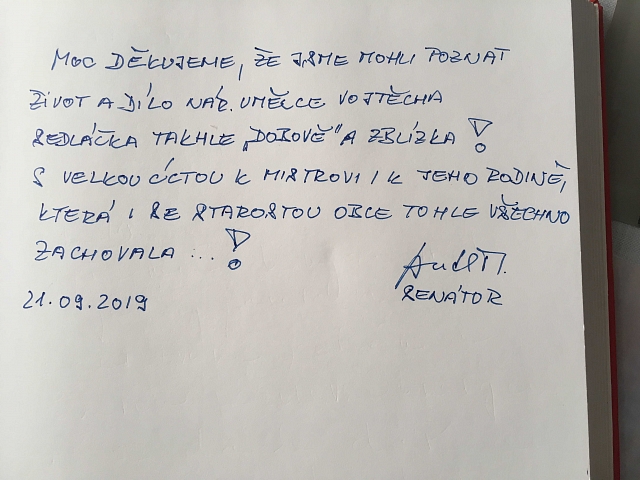 MOC DĚKUJEME, ŽE JSME MOHLI POZNAT
ŽIVOT A DÍLO NÁR. UMĚLCE VOJTĚCHA
SEDLÁČKA TAKHLE „DOBOVĚ" A ZBLÍZKA!
S VELKOU ÚCTOU K MISTROVI I K JEHO RODINĚ,
KTERÁ I SE STAROSTOU OBCE TOHLE VŠECHNO
ZACHOVALA ...!
21.09.2019
SENÁTOR